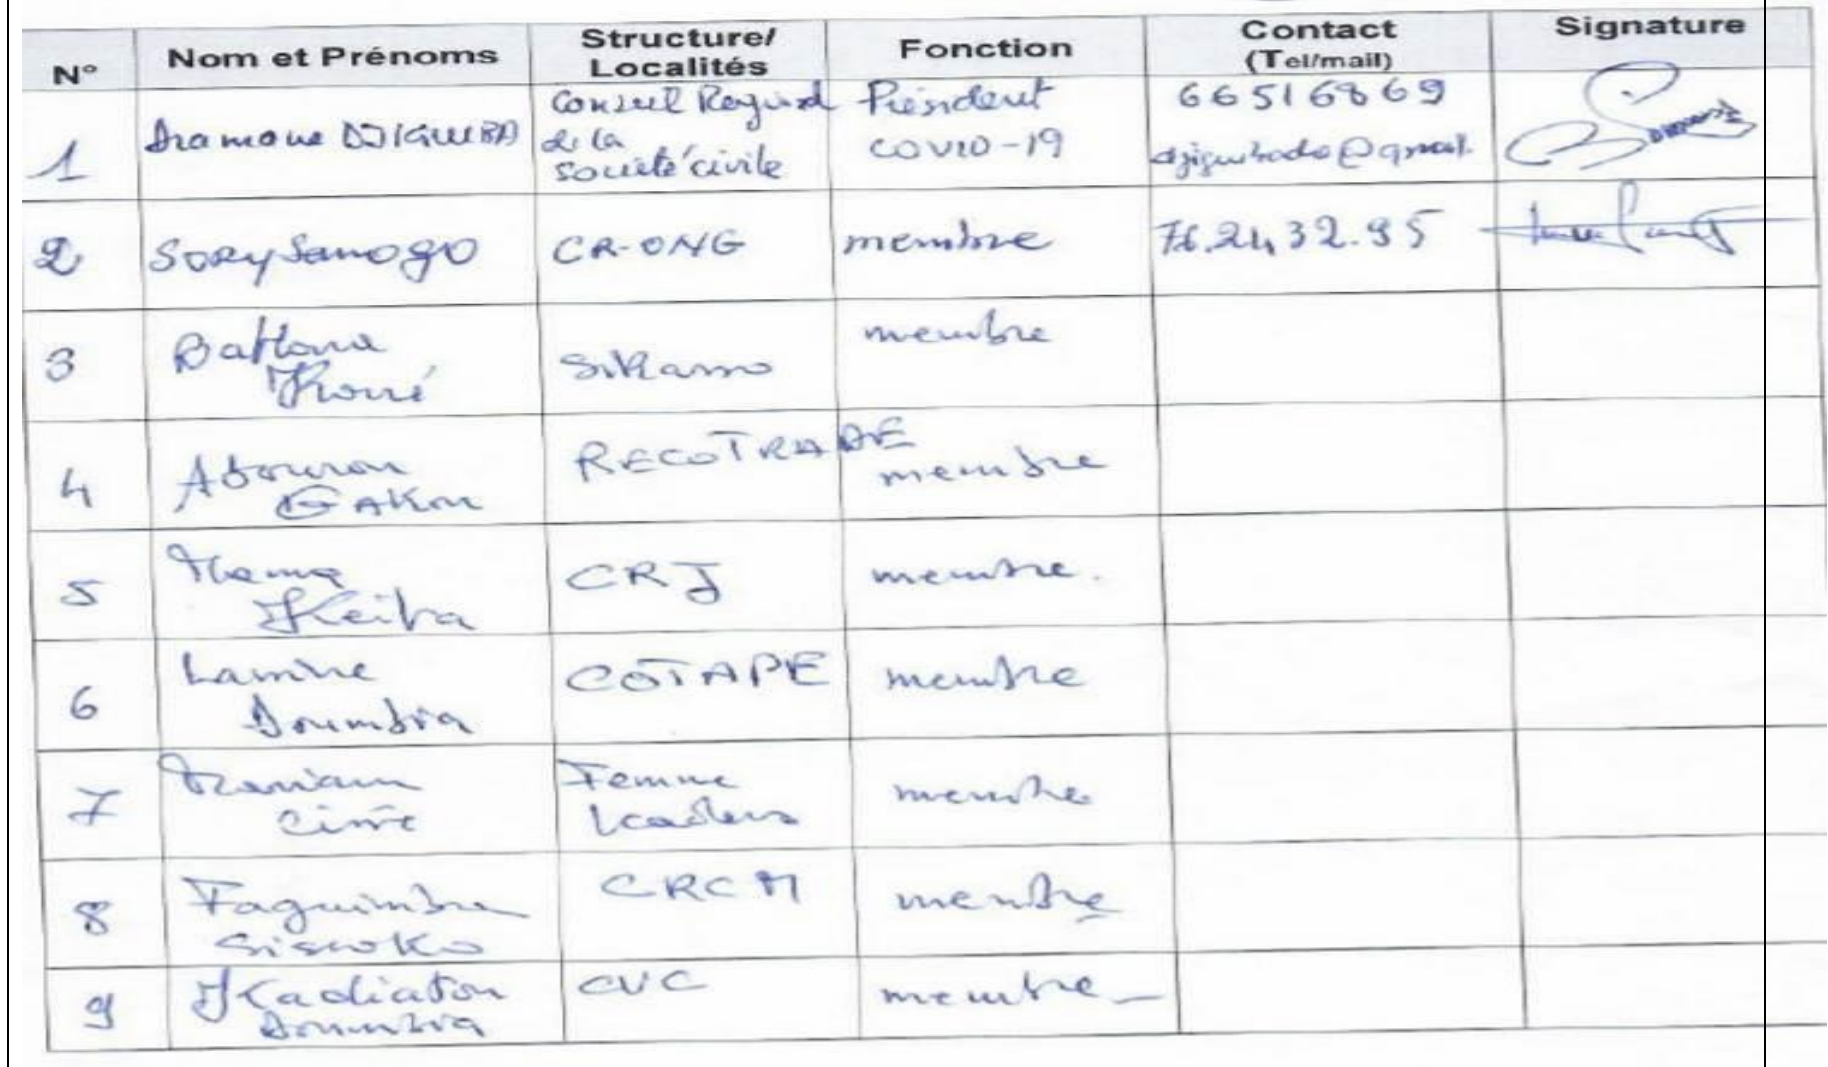 N° Nom et Prénoms Structure/ Localités Fonction Contact (Tel/mail) Signature
1 Dramane DJIGUIBA Conseil Régional de la Société civile Président COVID-19 66516869
2 Sory Sanogo CR-ONG membre 76.24 32.95
3 Koné Sikasso membre
4 RECOTRADE membre
5 Keita CRJ membre.
6 Lamine Doumbia COTAPE membre
7 Mariam Cissé Femme Leaders membre
8 Faguimba Sissoko CRCM membre
9 Kadiatou Doumbia CVC membre